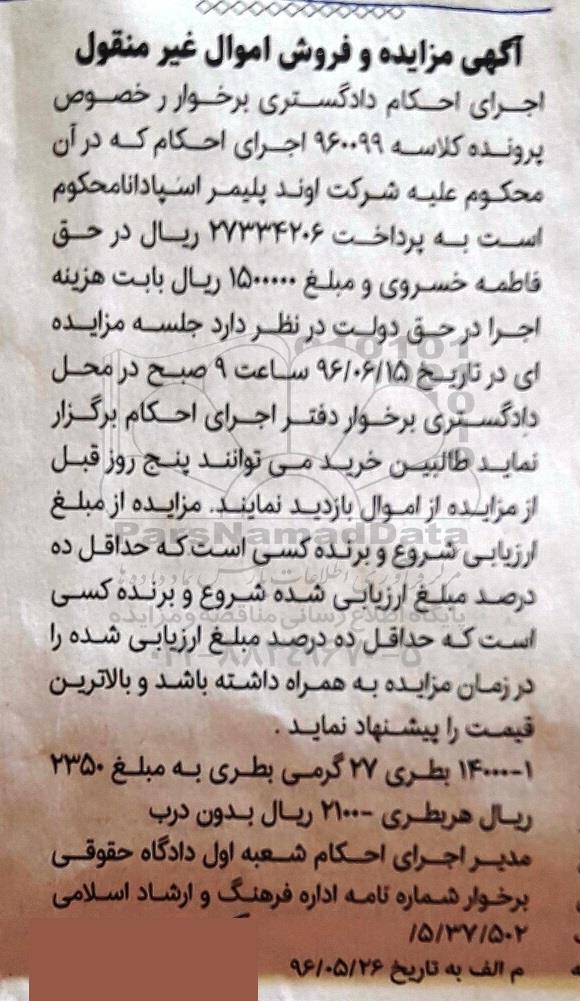 آگهی مزایده و فروش اموال غیر منقول
اجرای احکام دادگستری برخوار ر خصوص
پرونده کلاسه ۹۶۰۰۹۹ اجرای احکام که در آن
محکوم علیه شرکت اوند پلیمر اسپادانامحکوم
است به پرداخت ۲۷۳۳۴۲۰۶ ریال در حق
فاطمه خسروی و مبلغ ۱۵۰۰۰۰۰ ریال بابت هزینه
اجرا در حق دولت در نظر دارد جلسه مزایده
ای در تاریخ ۹۶/۰۶/۱۵ ساعت ۹ صبح در محل
دادگستری برخوار دفتر اجرای احکام برگزار
نماید طالبین خرید می توانند پنج روز قبل
از مزایده از اموال بازدید نمایند. مزایده از مبلغ
ParsNamadData
ارزیابی شروع و برنده کسی است که حداقل ده
درصد مبلغ ارزیابی شده شروع و برنده کسی
پایگاه اطلاع رسانی مناقصه و مزایده
است که حداقل ده درصد مبلغ ارزیابی شده را
در زمان مزایده به همراه داشته باشد و بالاترین
قیمت را پیشنهاد نماید .
۱-۱۴۰۰۰ بطری ۲۷ گرمی بطری به مبلغ ۲۳۵۰
ریال هربطری -۲۱۰۰ ریال بدون درب
مدیر اجرای احکام شعبه اول دادگاه حقوقی
برخوار شماره نامه اداره فرهنگ و ارشاد اسلامی
۵/۳۷/۵۰۲/
م الف به تاریخ ۹۶/۰۵/۲۶